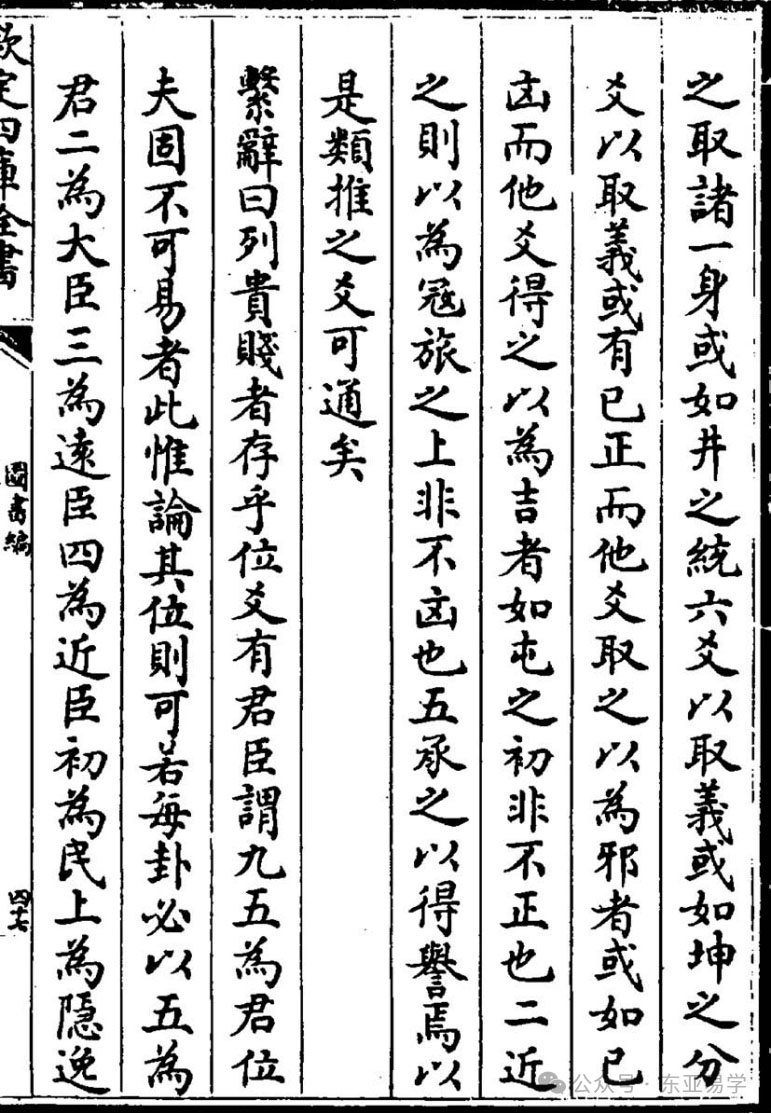 之取諸一身或如井之統六爻以取義或如坤之分
爻以取義或有已正而他爻取之以為邪者或如已
凶而他爻得之以為吉者如屯之初非不正也二近
之則以為冦旅之上非不凶也五承之以得譽焉以
是類推之爻可通矣
繫辭曰列貴賤者存乎位爻有君臣謂九五為君位
夫固不可易者此惟論其位則可若每卦必以五為
君二為大臣三為遠臣四為近臣初為民上為隱逸
欽定四庫全書
圖書編
四十七
公众号·东亚易学